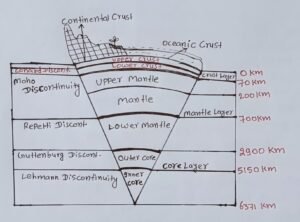 Continental Crust
Oceanic Crust
Upper Crust
Lower Crust
Conard Discont.
Crust Layer
0 KM
Moho
Discontinuity
70 KM
Upper Mantle
200 KM
Mantle
Mantle Layer
700 KM
Repetti Discont.
Lower Mantle
Guttenburg Discont.
2900 KM
Outer core
Core Layer
5150 KM
Lehmann Discontinuity
Inner
core
6371 KM